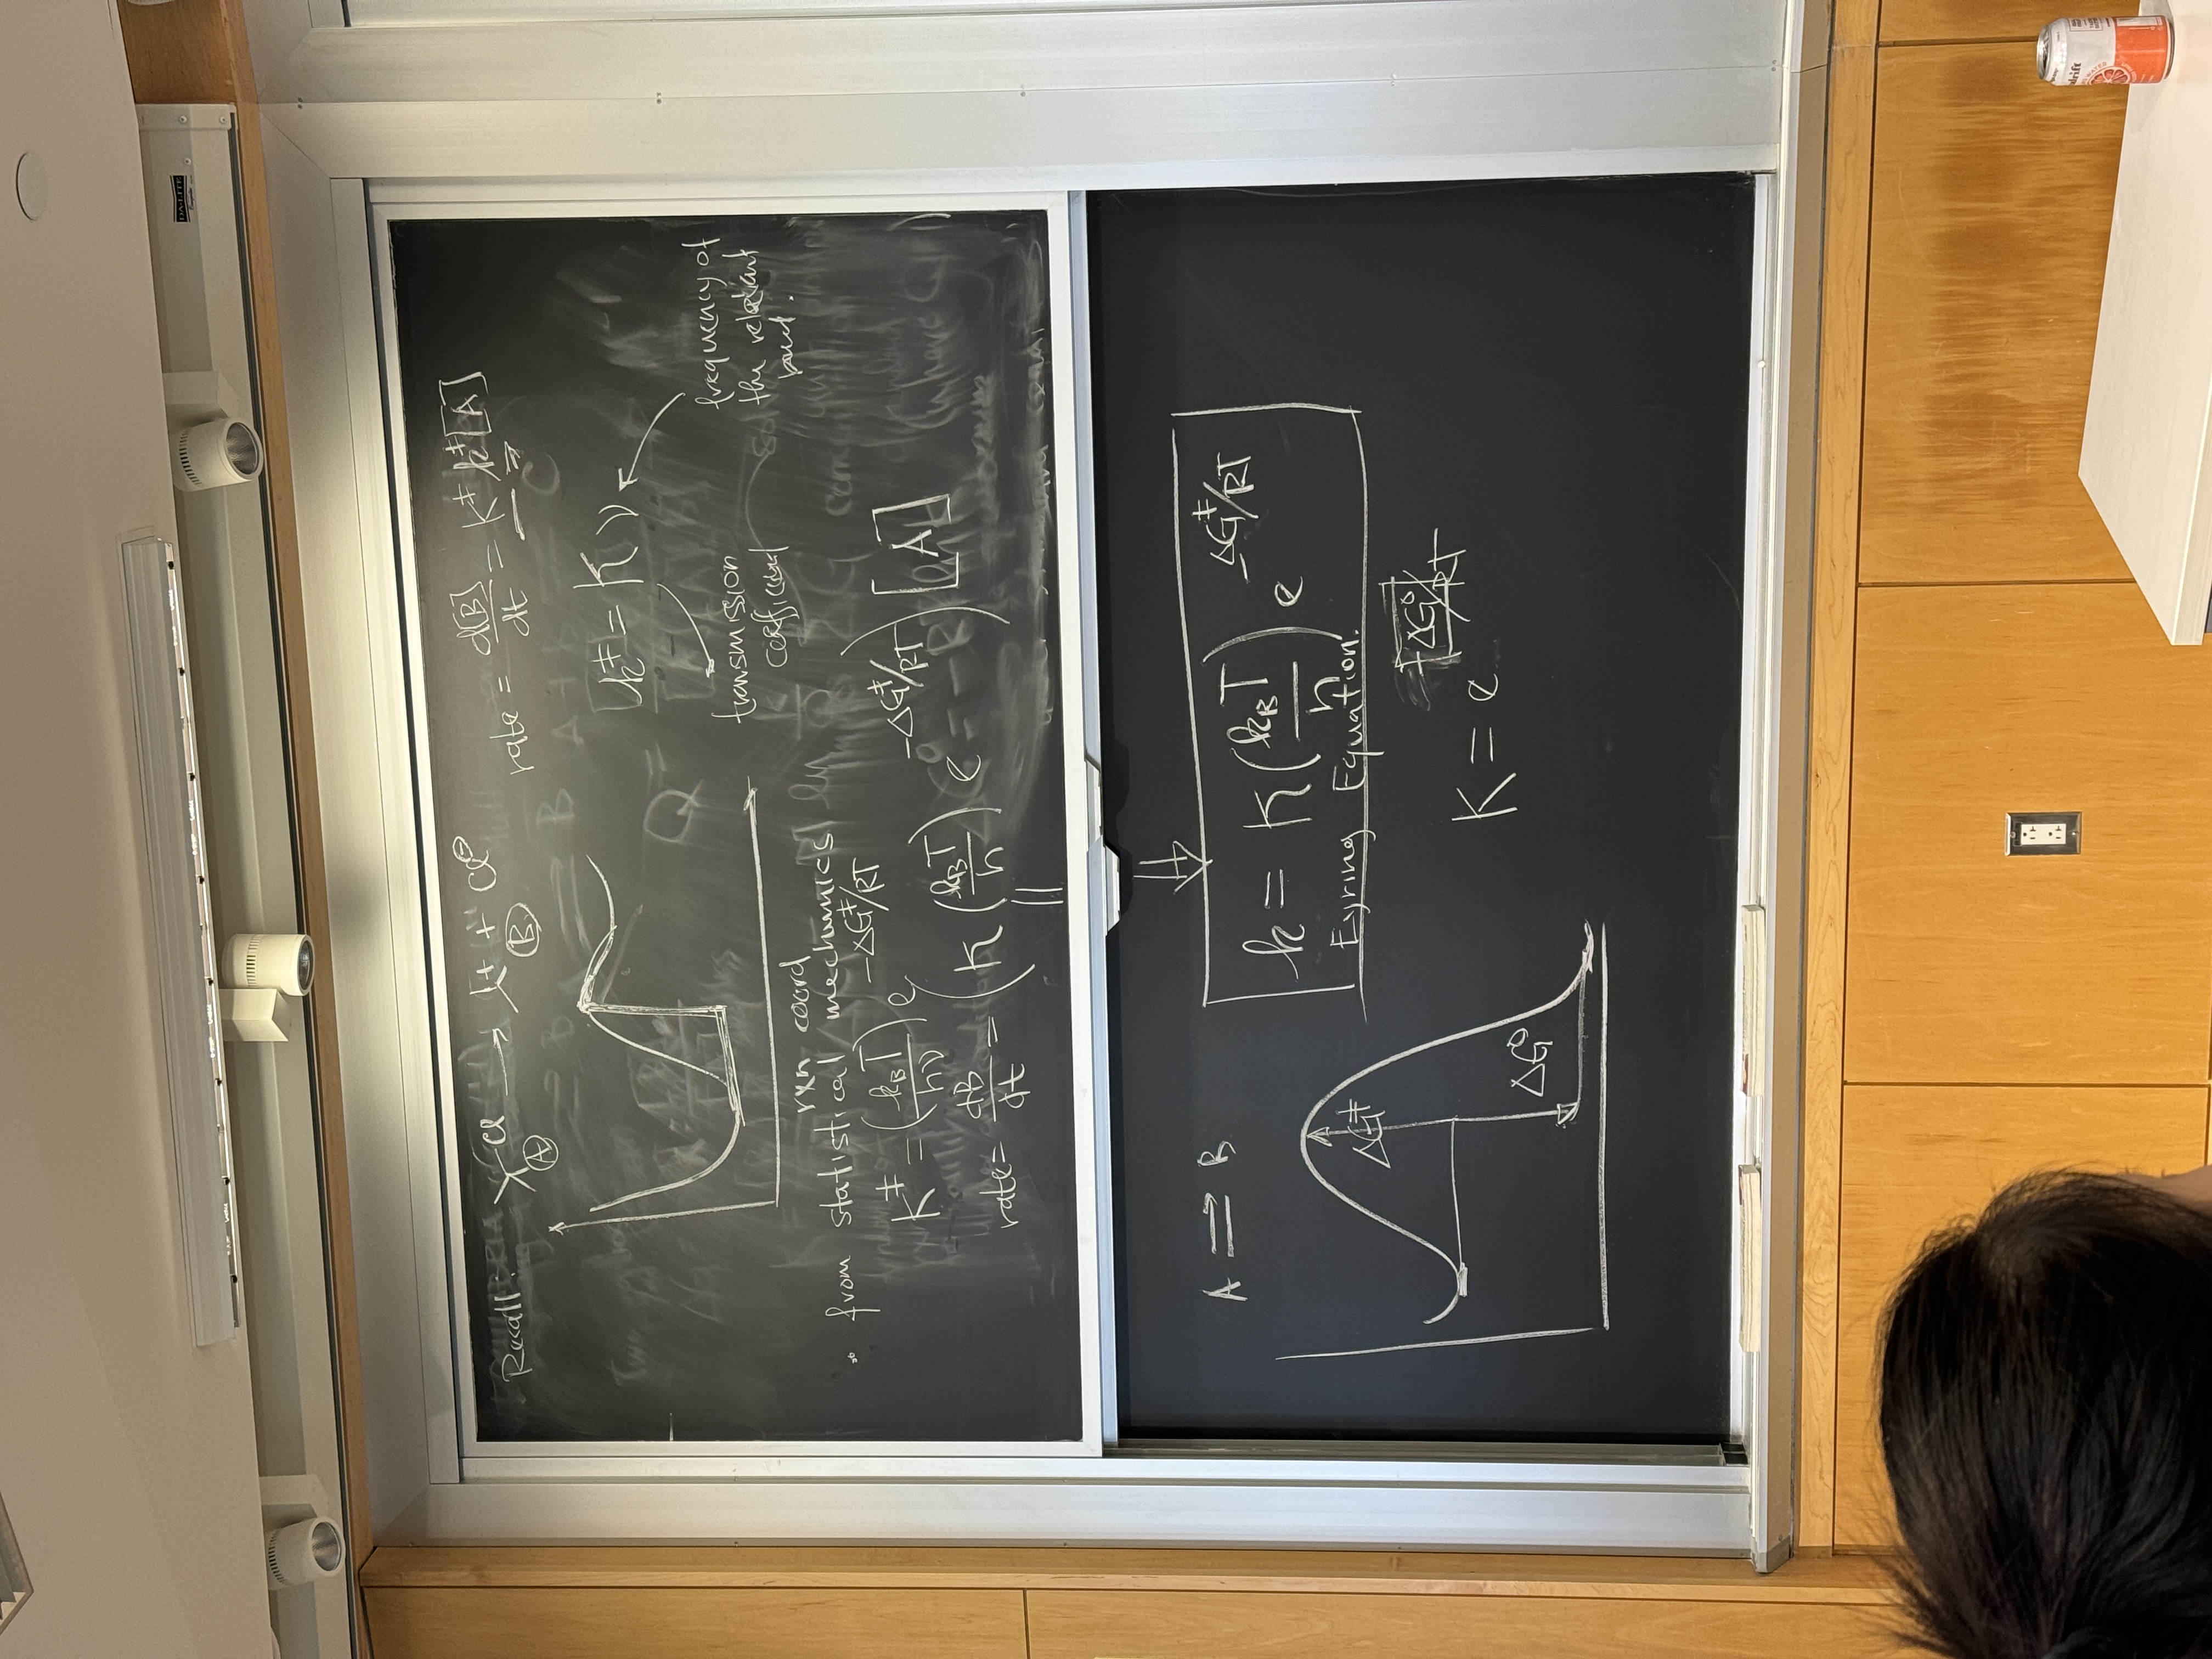 DA-LITE
Recall: Cl → + + Cl⊖
A B
rate = d[B]/dt = K‡ k‡ [A]
k‡ = κ ν
transmission coefficient
frequency of the relevant
rxn coord
from statistical mechanics
K‡ = (k_B T/hν) e^(-ΔG‡/RT)
rate = dB/dt = (κ (k_B T/h) e^(-ΔG‡/RT)) [A]
A ⇌ B
k = κ (k_B T/h) e^(-ΔG‡/RT)
Eyring Equation.
ΔG‡
ΔG°
K = e^(-ΔG°/RT)